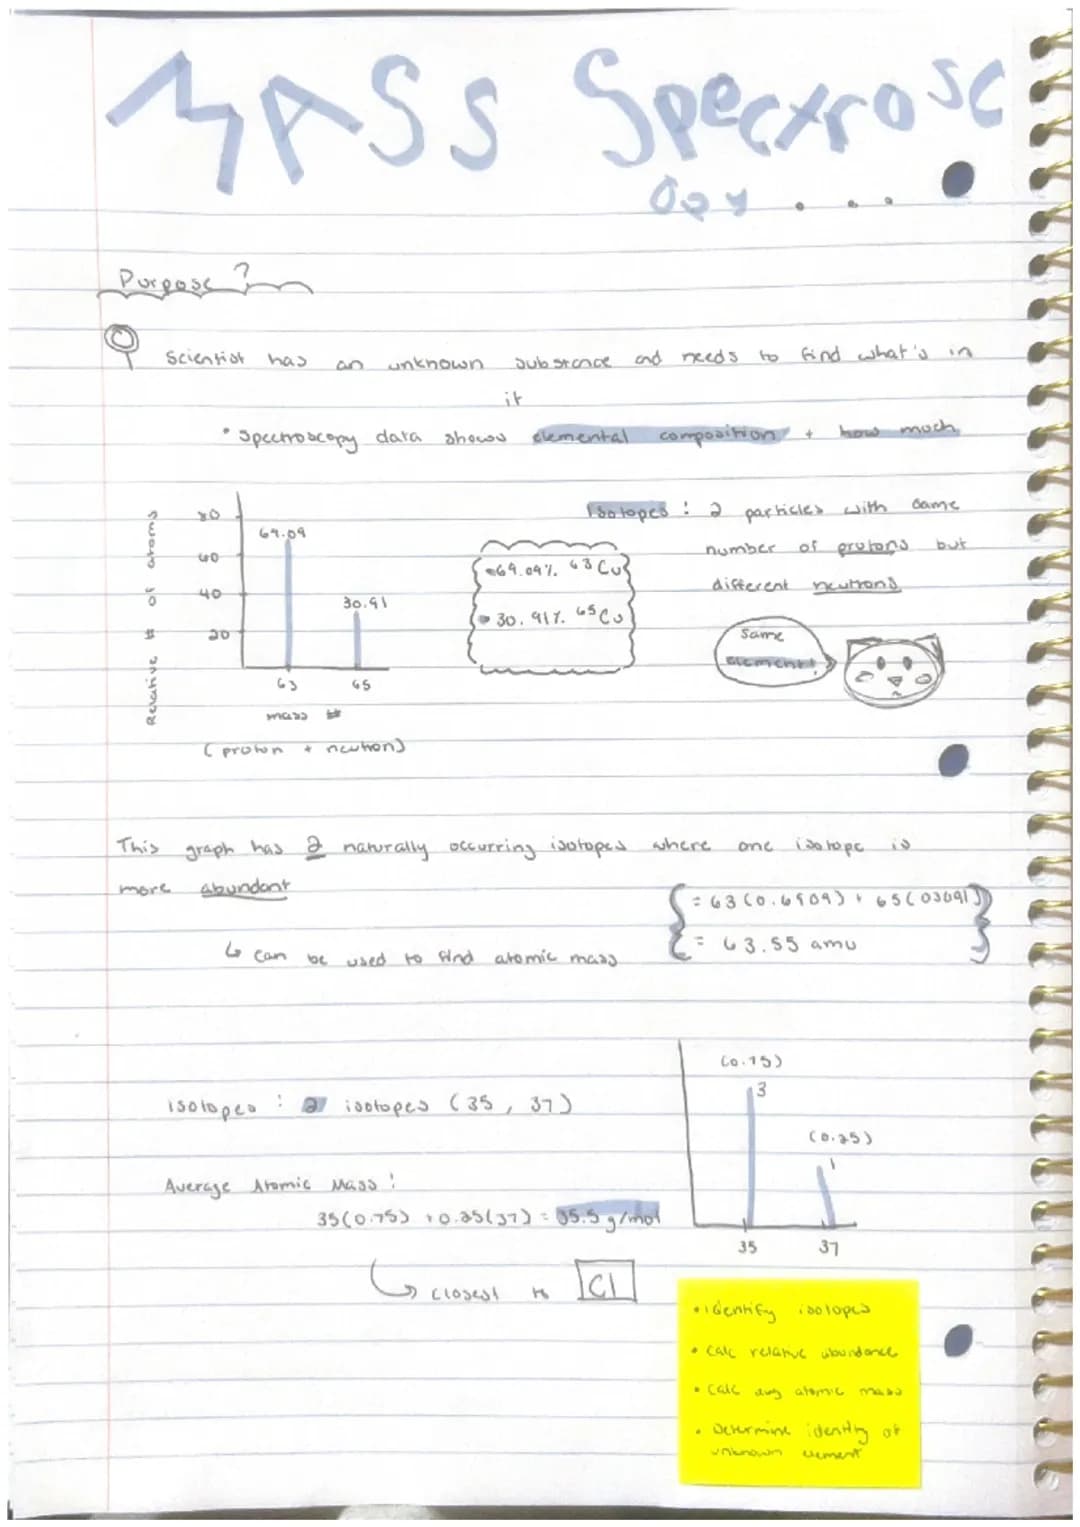 MASS Spectrosc
opy . . . .
Purpose ?
Scientist has an unknown substance and needs to find what's in
it
• Spectroscopy data shows elemental composition + how much
Relative # of atoms
80
60
40
20
69.09
30.91
63
65
mass #
(proton + neutron)
• 69.09% 63Cu
• 30.91% 65Cu
Isotopes : 2 particles with same
number of protons but
different neutrons
same
element!
This graph has 2 naturally occurring isotopes where one isotope is
more abundant
↳ can be used to find atomic mass
= 63(0.6909) + 65(03091)
= 63.55 amu
isotopes : 2 isotopes (35, 37)
Average Atomic Mass :
35(0.75) + 0.25(37) = 35.5 g/mol
↳ closest to Cl
(0.75)
3
(0.25)
1
35
37
• identify isotopes
• calc relative abundance
• calc avg atomic mass
• Determine identity of
unknown element